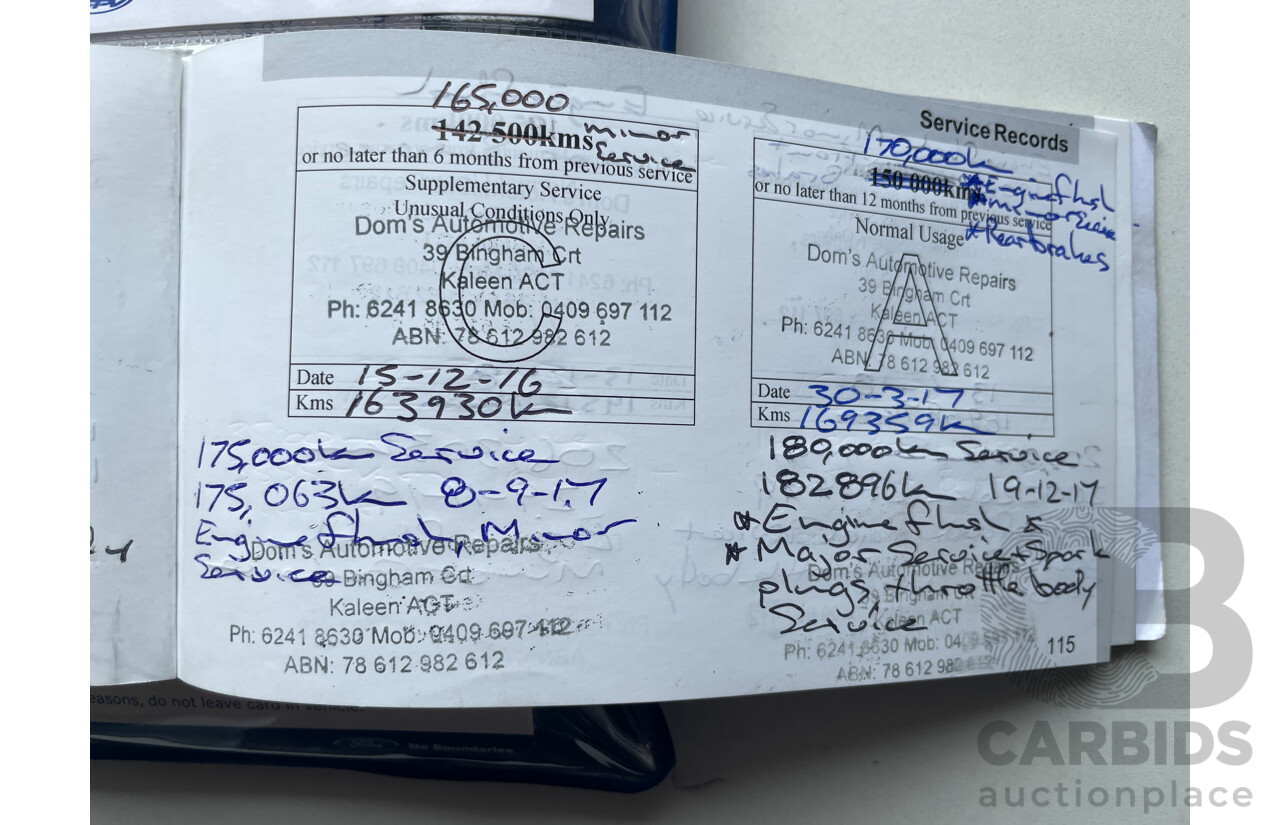 Service Records
165,000
142 500kms minor
Service
or no later than 6 months from previous service
Supplementary Service
Unusual Conditions Only
Dom's Automotive Repairs
39 Bingham Crt
Kaleen ACT
Ph: 6241 8630 Mob: 0409 697 112
ABN: 78 612 982 612
C
Date 15-12-16
Kms 163930k
175,000k Service
175,063k 8-9-17
Engine flush, Minor
Service
Dom's Automotive Repairs
39 Bingham Crt
Kaleen ACT
Ph: 6241 8630 Mob: 0409 697 112
ABN: 78 612 982 612
170,000k
150 000kms
* Engine flush
* minor Service
* Rear brakes
or no later than 12 months from previous service
Normal Usage
Dom's Automotive Repairs
39 Bingham Crt
Kaleen ACT
Ph: 6241 8630 Mob: 0409 697 112
ABN: 78 612 982 612
A
Date 30-3-17
Kms 169359k
180,000k Service
182896k 19-12-17
* Engine flush &
* Major Service + Spark
plugs, throttle body
Service
Dom's Automotive Repairs
39 Bingham Crt
Kaleen ACT
Ph: 6241 8630 Mob: 0409 697 112
ABN: 78 612 982 612
115
easons, do not leave card in vehicle.
Ford No Boundaries
CARBIDS
auctionplace